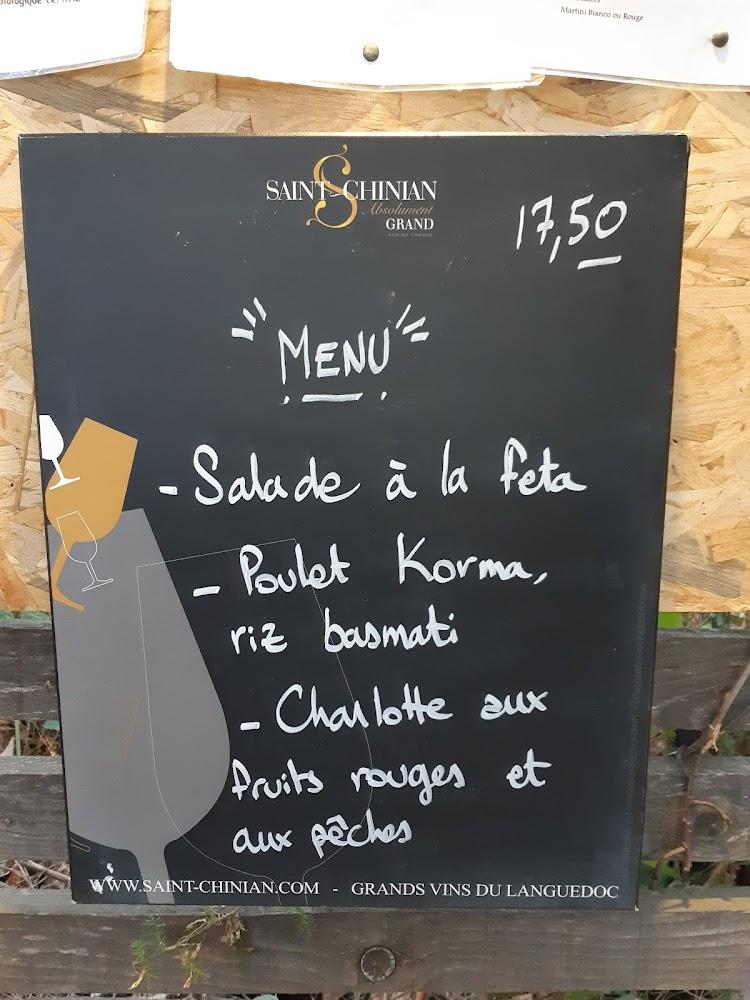 Martini Bianco ou Rouge
SAINT-CHINIAN
Absolument
GRAND
17,50
MENU
- Salade à la feta
- Poulet Korma,
riz basmati
- Charlotte aux
fruits rouges et
aux pêches
WWW.SAINT-CHINIAN.COM - GRANDS VINS DU LANGUEDOC